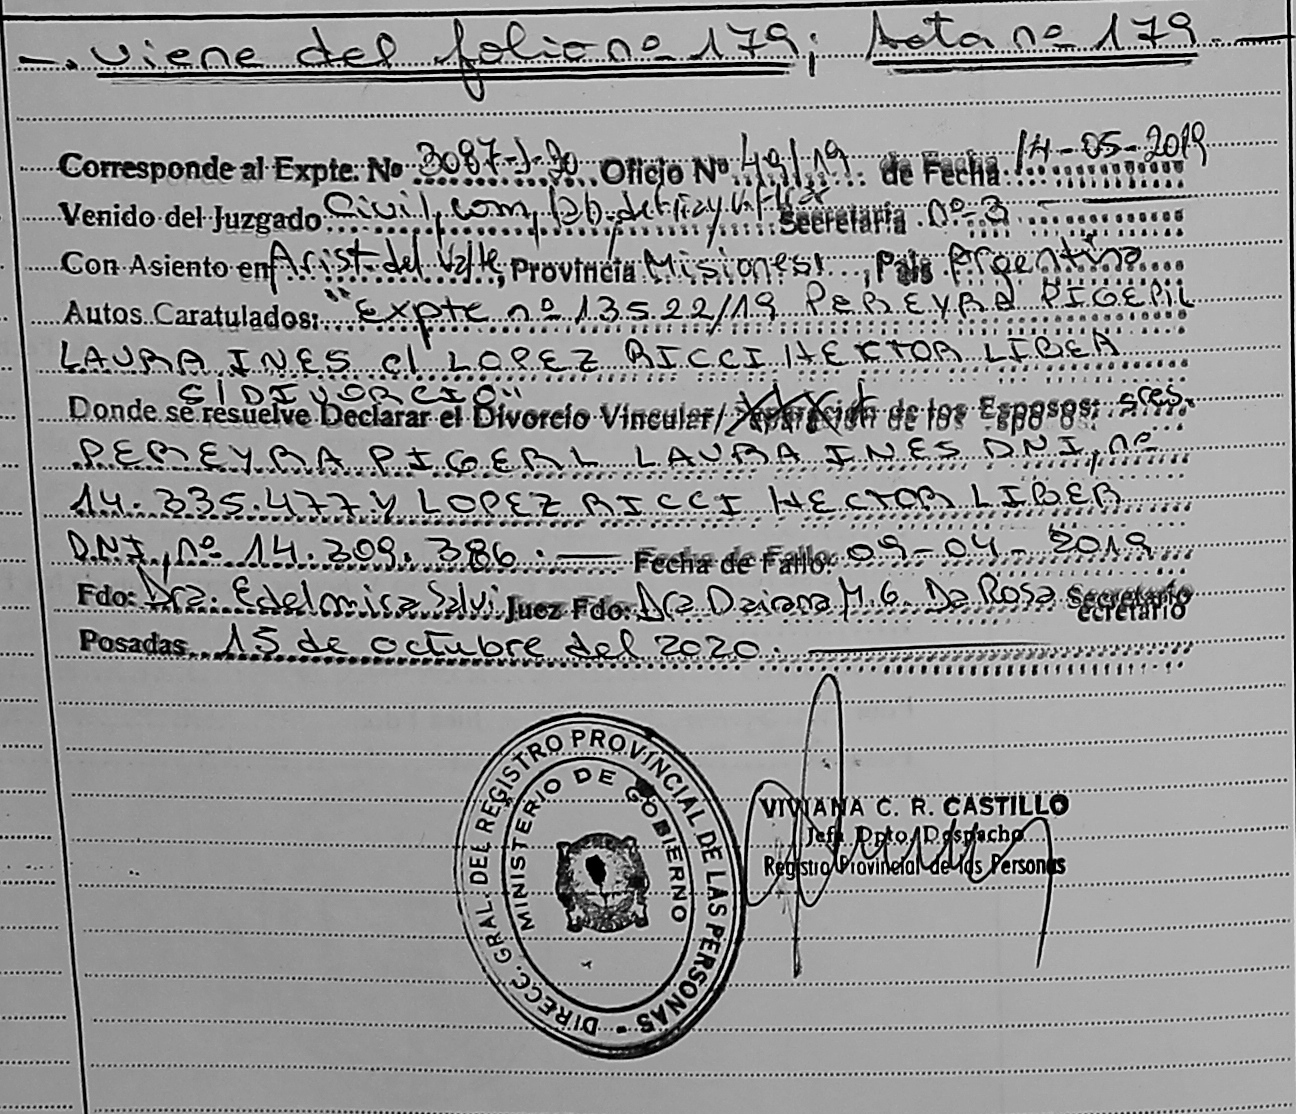 —. viene del folio nº 179; Acta nº 179. —
Corresponde al Expte: No 3087-J-20 Oficio Nº 49/19 de Fecha: 14-05-2019
Venido del Juzgado Civil, com, lab. de fia y Secretaria Nº 3
Con Asiento en Arist. del Valle, Provincia Misiones, Pais Argentina
Autos Caratulados: "Expte nº 13522/19 PEREYRA PIGERL
LAURA INES c/ LOPEZ RICCI HECTOR LIBER
S/ DIVORCIO"
Donde se resuelve Declarar el Divorcio Vincular/ Separación de los Esposos: sres.
PEREYRA PIGERL LAURA INES DNI, nº
14.335.477 y LOPEZ RICCI HECTOR LIBER
DNI, nº 14.309.386. — Fecha de Fallo: 09-04-2019
Fdo: Dra. Edelmira Salvi Juez Fdo: Dra Daiana M.G. Da Rosa Secretario
ecretario
Posadas 15 de octubre del 2020. —
DIRECC. GRAL. DEL REGISTRO PROVINCIAL DE LAS PERSONAS -
MINISTERIO DE GOBIERNO
VIVIANA C. R. CASTILLO
Jefa Dpto. Despacho
Registro Provincial de las Personas